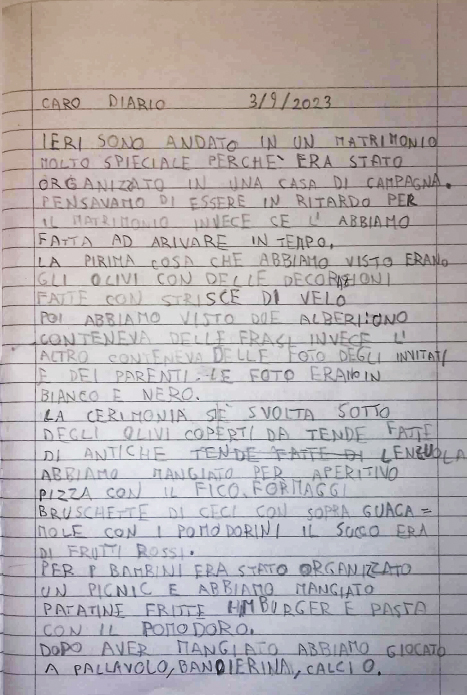 CARO DIARIO 3/9/2023
IERI SONO ANDATO IN UN MATRIMONIO
MOLTO SPIECIALE PERCHE` ERA STATO
ORGANIZZATO IN UNA CASA DI CAMPAGNA.
PENSAVAMO DI ESSERE IN RITARDO PER
IL MATRIMONIO INVECE CE L' ABBIAMO
FATTA AD ARIVARE IN TEMPO.
LA PIRIMA COSA CHE ABBIAMO VISTO ERANO
GLI OLIVI CON DELLE DECORAZIONI
FATTE CON STRISCE DI VELO
POI ABBIAMO VISTO DUE ALBERI:UNO
CONTENEVA DELLE FRASI INVECE L'
ALTRO CONTENEVA DELLE FOTO DEGLI INVITATI
E DEI PARENTI. LE FOTO ERANO IN
BIANCO E NERO.
LA CERIMONIA SE` SVOLTA SOTTO
DEGLI OLIVI COPERTI DA TENDE FATTE
DI ANTICHE TENDE FATTE DI LENZUOLA
ABBIAMO MANGIATO PER APERITIVO
PIZZA CON IL FICO, FORMAGGI
BRUSCHETTE DI CECI CON SOPRA GUACA=
MOLE CON I POMODORINI IL SUCCO ERA
DI FRUTTI ROSSI.
PER I BAMBINI ERA STATO ORGANIZZATO
UN PICNIC E ABBIAMO MANGIATO
PATATINE FRITTE HMBURGER E PASTA
CON IL POMODORO.
DOPO AVER MANGIATO ABBIAMO GIOCATO
A PALLAVOLO, BANDIERINA, CALCIO.